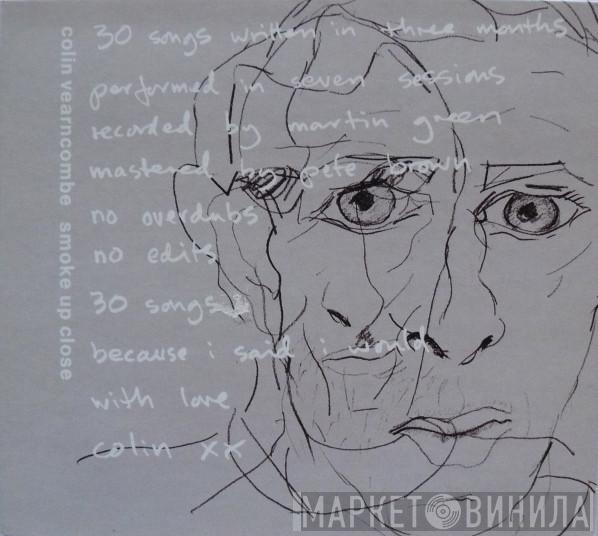 colin vearncombe smoke up close
30 songs written in three months
performed in seven sessions
recorded by martin green
mastered by pete brown
no overdubs
no edits
30 songs
because i said i would
with love
colin xx
МАРКЕТ ВИНИЛА